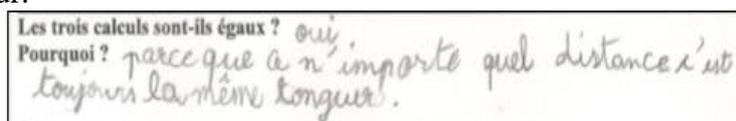 Les trois calculs sont-ils égaux ? oui
Pourquoi ? parce que a n'importe quel distance c'est
toujours la même longuer.